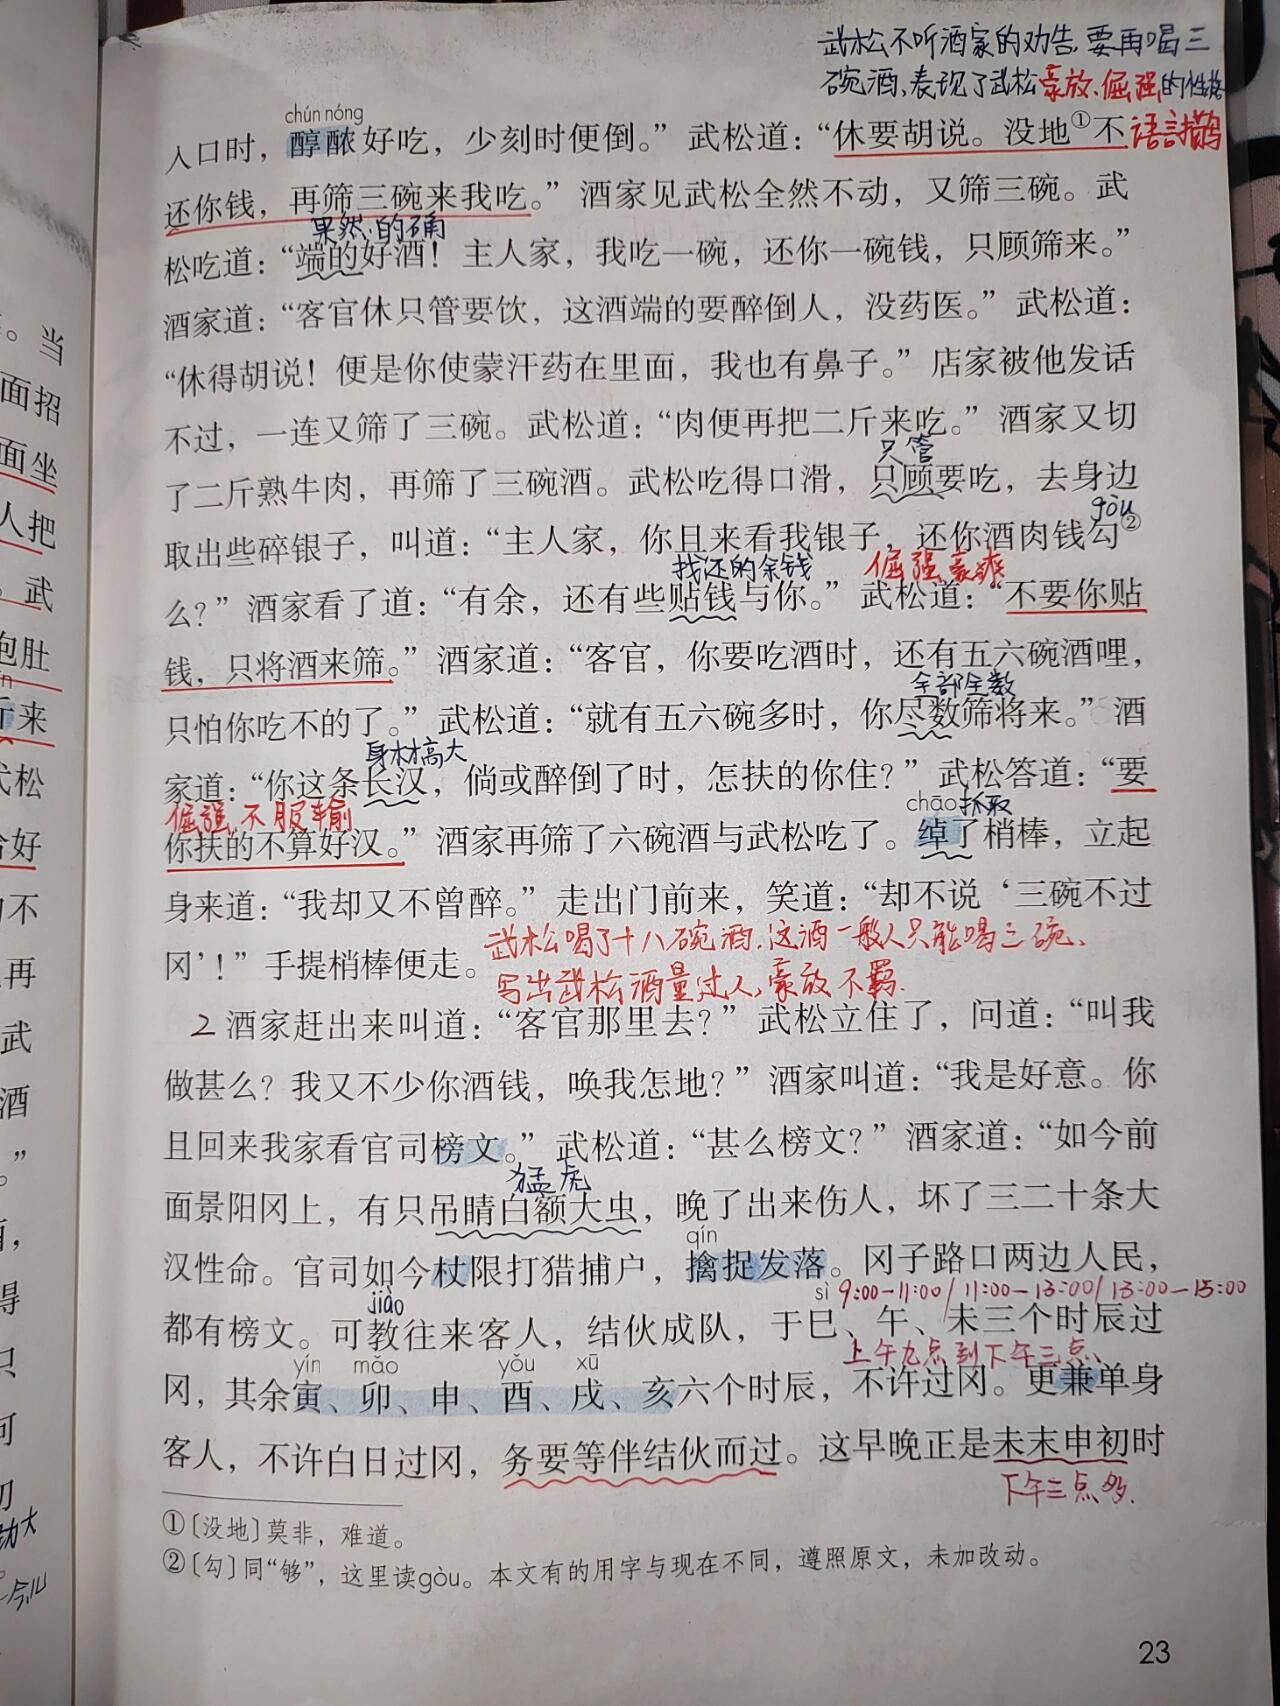 武松不听酒家的劝告，要再喝三
碗酒，表现了武松豪放、倔强的性格
chún nóng
入口时，醇酿好吃，少刻时便倒。”武松道：“休要胡说。没地①不
语言描写
还你钱，再筛三碗来我吃。”酒家见武松全然不动，又筛三碗。武
果然、的确
松吃道：“端的好酒！主人家，我吃一碗，还你一碗钱，只顾筛来。”
酒家道：“客官休只管要饮，这酒端的要醉倒人，没药医。”武松道：
“休得胡说！便是你使蒙汗药在里面，我也有鼻子。”店家被他发话
不过，一连又筛了三碗。武松道：“肉便再把二斤来吃。”酒家又切
只管
了二斤熟牛肉，再筛了三碗酒。武松吃得口滑，只顾要吃，去身边
gòu
取出些碎银子，叫道：“主人家，你且来看我银子，还你酒肉钱勾②
找还的余钱 倔强、豪爽
么？”酒家看了道：“有余，还有些贴钱与你。”武松道：“不要你贴
钱，只将酒来筛。”酒家道：“客官，你要吃酒时，还有五六碗酒哩，
全部全数
只怕你吃不的了。”武松道：“就有五六碗多时，你尽数筛将来。”酒
身材高大
家道：“你这条长汉，倘或醉倒了时，怎扶的你住？”武松答道：“要
倔强、不服输 chāo 抓取
你扶的不算好汉。”酒家再筛了六碗酒与武松吃了。绰了梢棒，立起
身来道：“我却又不曾醉。”走出门前来，笑道：“却不说‘三碗不过
武松喝了十八碗酒，这酒一般人只能喝三碗、
冈’！”手提梢棒便走。
写出武松酒量过人，豪放不羁.
2 酒家赶出来叫道：“客官那里去？”武松立住了，问道：“叫我
做甚么？我又不少你酒钱，唤我怎地？”酒家叫道：“我是好意。你
且回来我家看官司榜文。”武松道：“甚么榜文？”酒家道：“如今前
猛虎
面景阳冈上，有只吊睛白额大虫，晚了出来伤人，坏了三二十条大
qín
汉性命。官司如今杖限打猎捕户，擒捉发落。冈子路口两边人民，
jiào sì 9:00-11:00/11:00-13:00/13:00-15:00
都有榜文。可教往来客人，结伙成队，于巳、午、未三个时辰过
yín mǎo yǒu xū 上午九点到下午三点、
冈，其余寅、卯、申、酉、戌、亥六个时辰，不许过冈。更兼单身
客人，不许白日过冈，务要等伴结伙而过。这早晚正是未末申初时
下午三点多.
①〔没地〕莫非，难道。
②〔勾〕同“够”，这里读gòu。本文有的用字与现在不同，遵照原文，未加改动。
23
当
面招
面坐
人把
武
包肚
来
武松
好
不
再
武
酒
。”
得
只